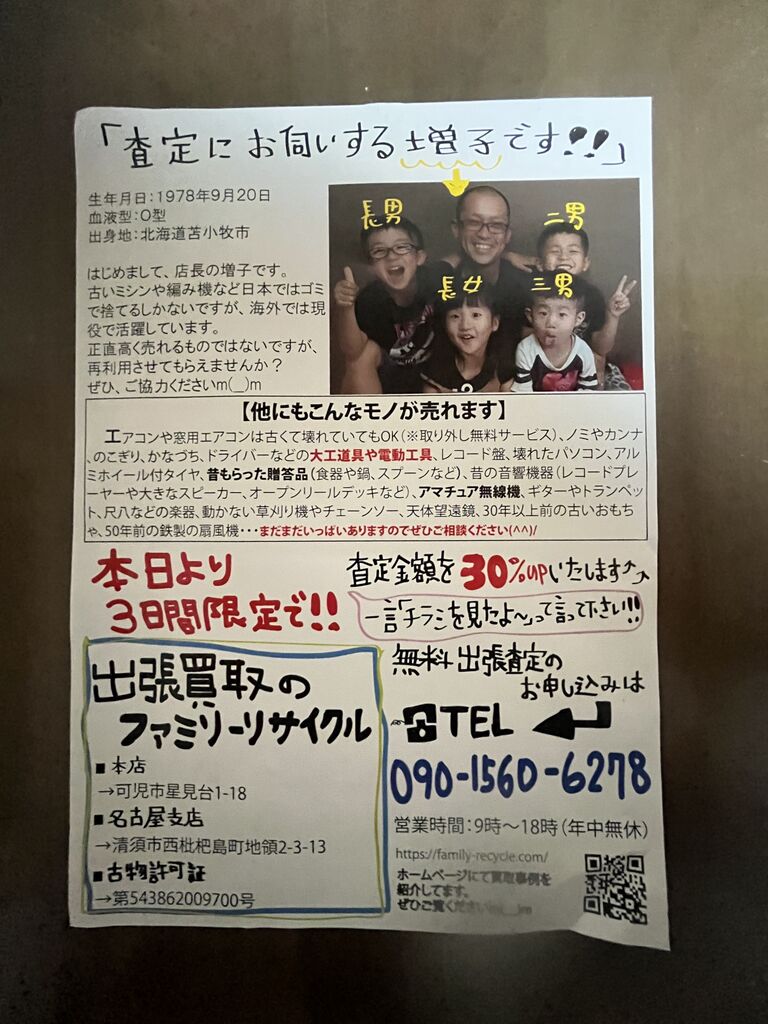 「査定にお伺いする増子です!!」
生年月日：1978年9月20日
血液型：O型
出身地：北海道苫小牧市
はじめまして、店長の増子です。
古いミシンや編み機など日本ではゴミ
で捨てるしかないですが、海外では現
役で活躍しています。
正直高く売れるものではないですが、
再利用させてもらえませんか？
ぜひ、ご協力くださいm(__)m
長男
二男
長女
三男
【他にもこんなモノが売れます】
エアコンや窓用エアコンは古くて壊れていてもOK（※取り外し無料サービス）、ノミやカンナ
、のこぎり、かなづち、ドライバーなどの大工道具や電動工具、レコード盤、壊れたパソコン、アル
ミホイール付タイヤ、昔もらった贈答品（食器や鍋、スプーンなど）、昔の音響機器（レコードプレ
ーヤーや大きなスピーカー、オープンリールデッキなど）、アマチュア無線機、ギターやトランペッ
ト、尺八などの楽器、動かない草刈り機やチェーンソー、天体望遠鏡、30年以上前の古いおもち
ゃ、50年前の鉄製の扇風機・・・まだまだいっぱいありますのでぜひご相談ください(^^)/
本日より
3日間限定で!!
査定金額を30%UPいたします
一言「チラシを見たよ〜」って言って下さい!!
出張買取の
ファミリーリサイクル
■本店
→可児市星見台1-18
■名古屋支店
→清須市西枇杷島町地領2-3-13
■古物許可証
→第543862009700号
無料出張査定の
お申し込みは
TEL
090-1560-6278
営業時間：9時〜18時（年中無休）
https://family-recycle.com/
ホームページにて買取事例を
紹介してます。
ぜひご覧くださいm(__)m